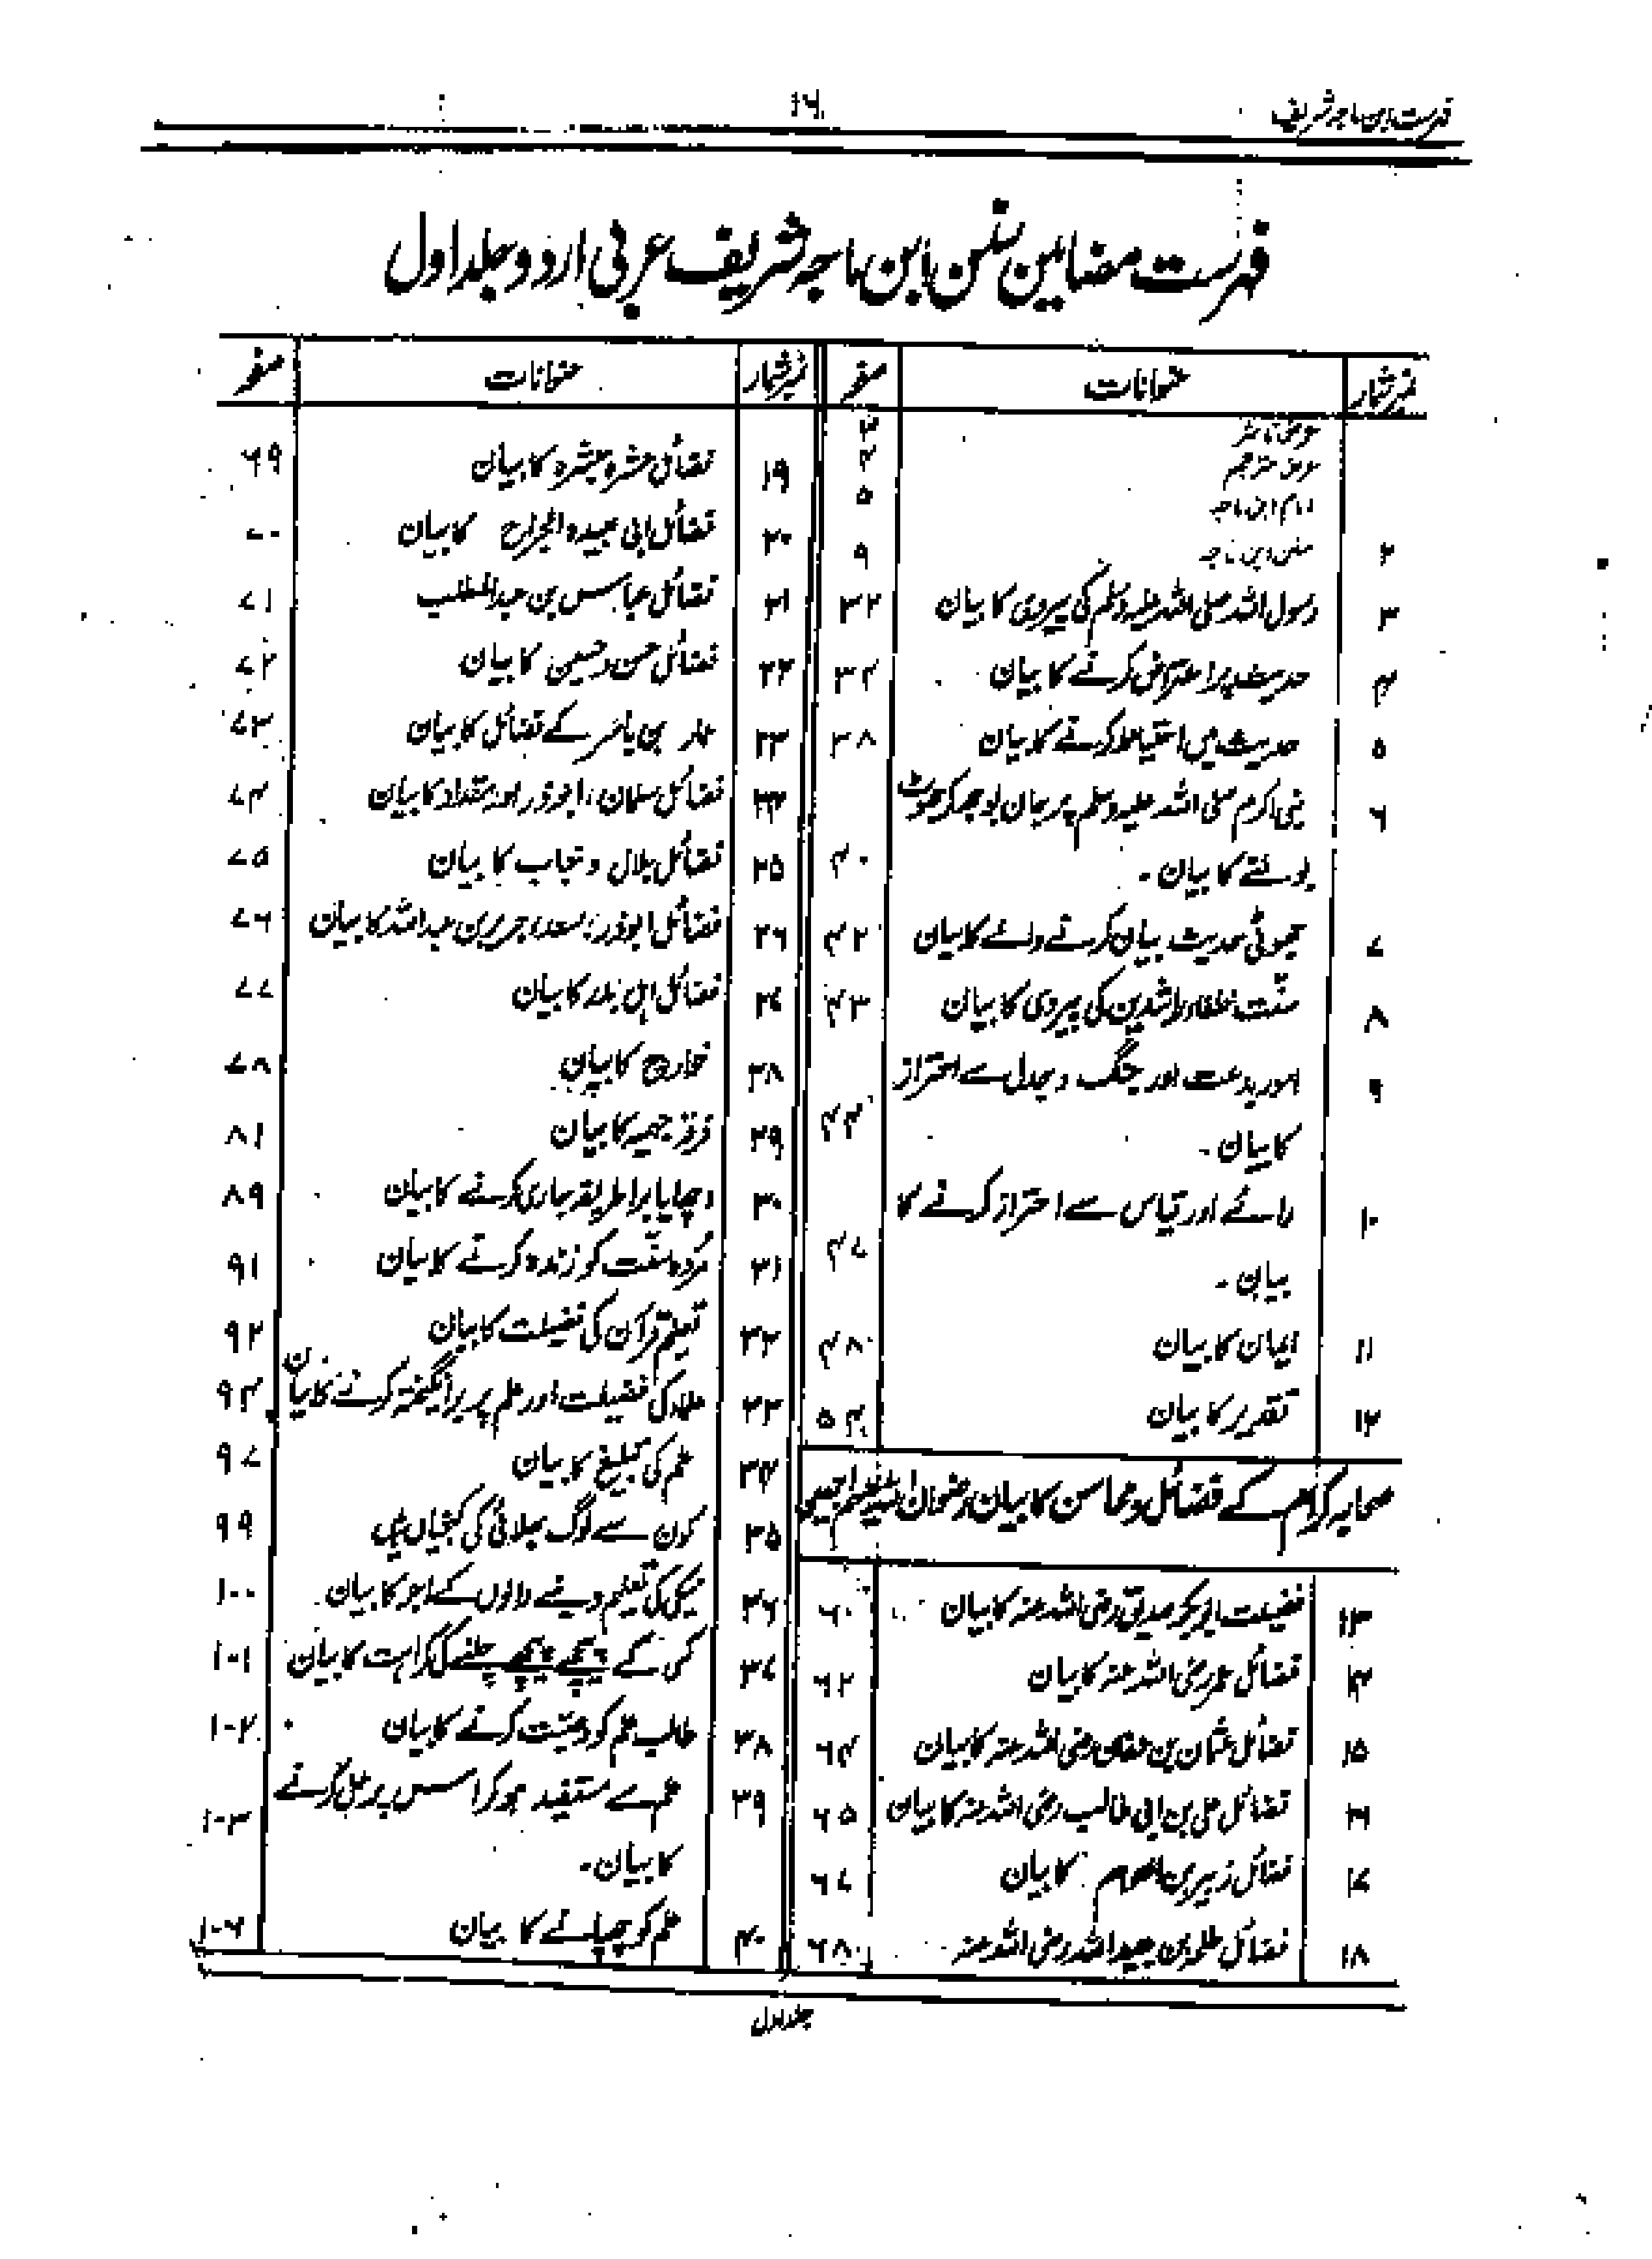 فہرست ابن ماجہ شریف
۱۶
فہرست مضامین سنن ابن ماجہ شریف عربی اردو جلد اول
نمبر شمار عنوانات صفحہ
عرض ناشر ۳
عرض مترجم ۴
امام ابن ماجہ ۵
۲ سنن ابن ماجہ ۹
۳ رسول اللہ صلی اللہ علیہ وسلم کی پیروی کا بیان ۳۲
۴ حدیث پر اعتراض کرنے کا بیان ۳۴
۵ حدیث میں احتیاط کرنے کا بیان ۳۸
۶ نبی اکرم صلی اللہ علیہ وسلم پر جان بوجھ کر جھوٹ
بولنے کا بیان۔ ۴۰
۷ جھوٹی حدیث بیان کرنے والے کا بیان ۴۲
۸ سنّت خلفاء راشدین کی پیروی کا بیان ۴۳
۹ امور بدعت اور جنگ وجدل سے احتراز
کا بیان۔ ۴۴
۱۰ رائے اور قیاس سے احتراز کرنے کا
بیان۔ ۴۷
۱۱ ایمان کا بیان ۴۸
۱۲ تقدیر کا بیان ۵۴
صحابہ کرام کے فضائل و محاسن کا بیان رضوان اللہ علیہم اجمعین
۱۳ فضیلت ابوبکر صدیق رضی اللہ عنہ کا بیان ۶۰
۱۴ فضائل عمر رضی اللہ عنہ کا بیان ۶۲
۱۵ فضائل عثمان بن عفان رضی اللہ عنہ کا بیان ۶۴
۱۶ فضائل علی بن ابی طالب رضی اللہ عنہ کا بیان ۶۵
۱۷ فضائل زبیر بن العوام کا بیان ۶۷
۱۸ فضائل طلحہ بن عبید اللہ رضی اللہ عنہ ۶۸
نمبر شمار عنوانات صفحہ
۱۹ فضائل عشرہ مبشرہ کا بیان ۶۹
۲۰ فضائل ابی عبیدہ الجراح کا بیان ۷۰
۲۱ فضائل عباس بن عبدالمطلب ۷۱
۲۲ فضائل حسن و حسین کا بیان ۷۲
۲۳ عمار بن یاسر کے فضائل کا بیان ۷۳
۲۴ فضائل سلمان، ابوذر اور مقداد کا بیان ۷۴
۲۵ فضائل بلال و خباب کا بیان ۷۵
۲۶ فضائل ابوذر، سعد، جریر بن عبداللہ کا بیان ۷۶
۲۷ فضائل اہل بدر کا بیان ۷۷
۲۸ خوارج کا بیان ۷۸
۲۹ فرقہ جہمیہ کا بیان ۸۱
۳۰ اچھا یا برا طریقہ جاری کرنے کا بیان ۸۹
۳۱ مُردہ سنّت کو زندہ کرنے کا بیان ۹۱
۳۲ تعلیم قرآن کی فضیلت کا بیان ۹۲
۳۳ علماء کی فضیلت اور علم پر برانگیختہ کرنے کا بیان ۹۴
۳۴ علم کی تبلیغ کا بیان ۹۷
۳۵ کون سے لوگ بھلائی کی کنجیاں ہیں ۹۹
۳۶ نیکی کی تعلیم دینے والوں کے اجر کا بیان ۱۰۰
۳۷ کسی کے پیچھے پیچھے چلنے کی کراہت کا بیان ۱۰۱
۳۸ طالب علم کو وصیّت کرنے کا بیان ۱۰۲
۳۹ علم سے مستفید ہو کر اس پر عمل کرنے
کا بیان۔ ۱۰۳
۴۰ علم کو چھپانے کا بیان ۱۰۶
جلد اول